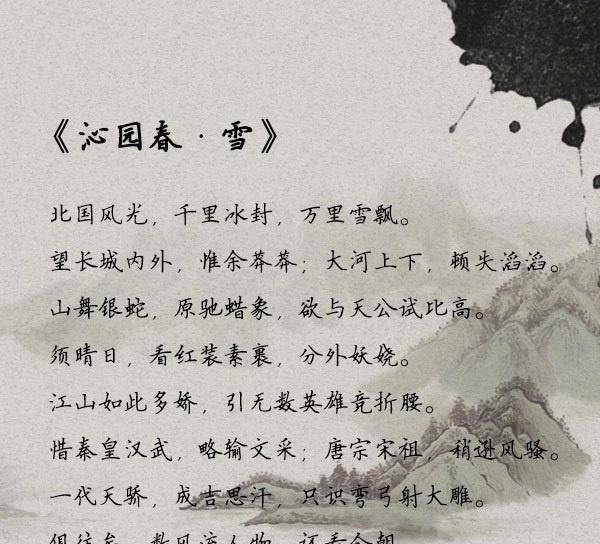 《沁园春·雪》
北国风光，千里冰封，万里雪飘。
望长城内外，惟余莽莽；大河上下，顿失滔滔。
山舞银蛇，原驰蜡象，欲与天公试比高。
须晴日，看红装素裹，分外妖娆。
江山如此多娇，引无数英雄竞折腰。
惜秦皇汉武，略输文采；唐宗宋祖，稍逊风骚。
一代天骄，成吉思汗，只识弯弓射大雕。
俱往矣 数风流人物 还看今朝